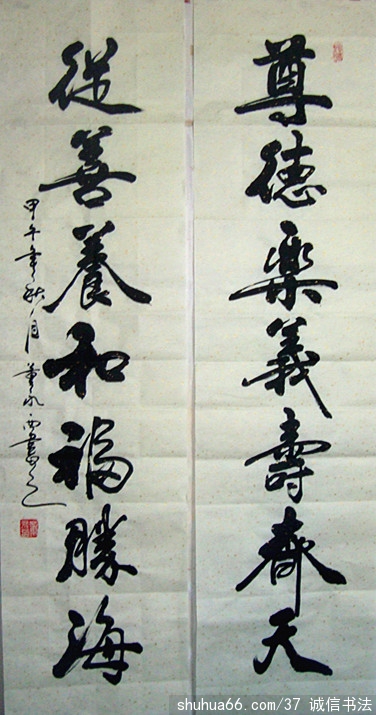 尊德樂義壽齊天
從善養和福勝海
甲午年秋月董永西書之
shuhua66.com/37 诚信书法